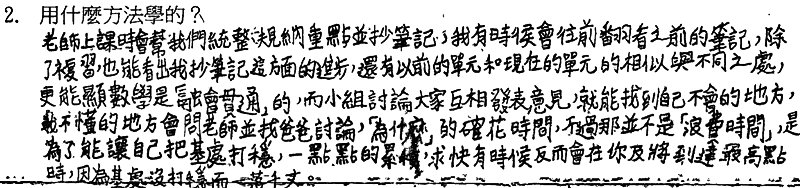 2. 用什麼方法學的？
老師上課時會幫我們統整規納重點並抄筆記；我有時候會往前翻看之前的筆記，除
了複習也能看出我抄筆記這方面的進步，還有以前的單元和現在的單元的相似與不同之處，
更能顯數學是「融會貫通」的，而小組討論大家互相發表意見，就能找到自己不會的地方，
較不懂的地方會問老師並找爸爸討論，「為什麼」的確花時間，不過那並不是「浪費時間」，是
為了能讓自己把基處打穩，一點點的累積，求快有時候反而會在你及將到達最高點
時，因為基處沒打穩而一落千丈。